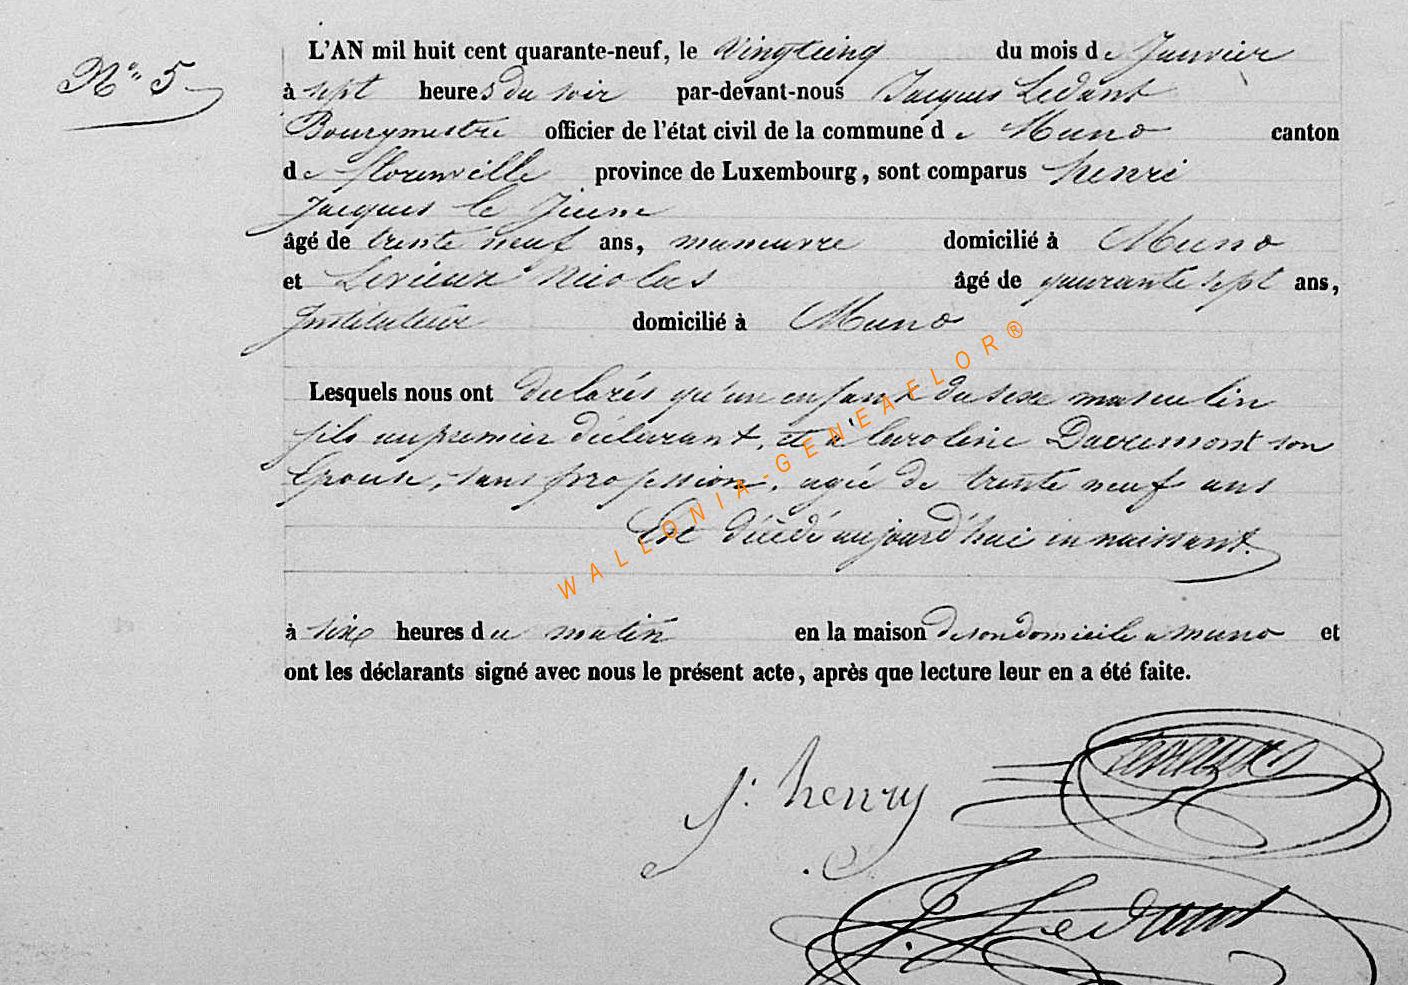 N° 5
L'AN mil huit cent quarante-neuf, le vingtcinq du mois de Janvier
à sept heures du soir par-devant-nous Jacques Ledant
Bourgmestre officier de l'état civil de la commune de Muno canton
de florenville province de Luxembourg, sont comparus henri
Jacques le Jeune
âgé de trente neuf ans, manuvre domicilié à Muno
et Levieux Nicolas âgé de quarante sept ans,
Instituteur domicilié à Muno
Lesquels nous ont déclarés qu'un enfant du sexe masculin
fils au premier déclarant, et à Caroline Davremont son
Epouse, sans profession, agée de trente neuf ans
Est décédé aujourd'hui in naissant.
à six heures du matin en la maison de son domicile a muno et
ont les déclarants signé avec nous le présent acte, après que lecture leur en a été faite.
J: henry
Levieux
J. Ledant
WALLONIA-GENEAFLOR®